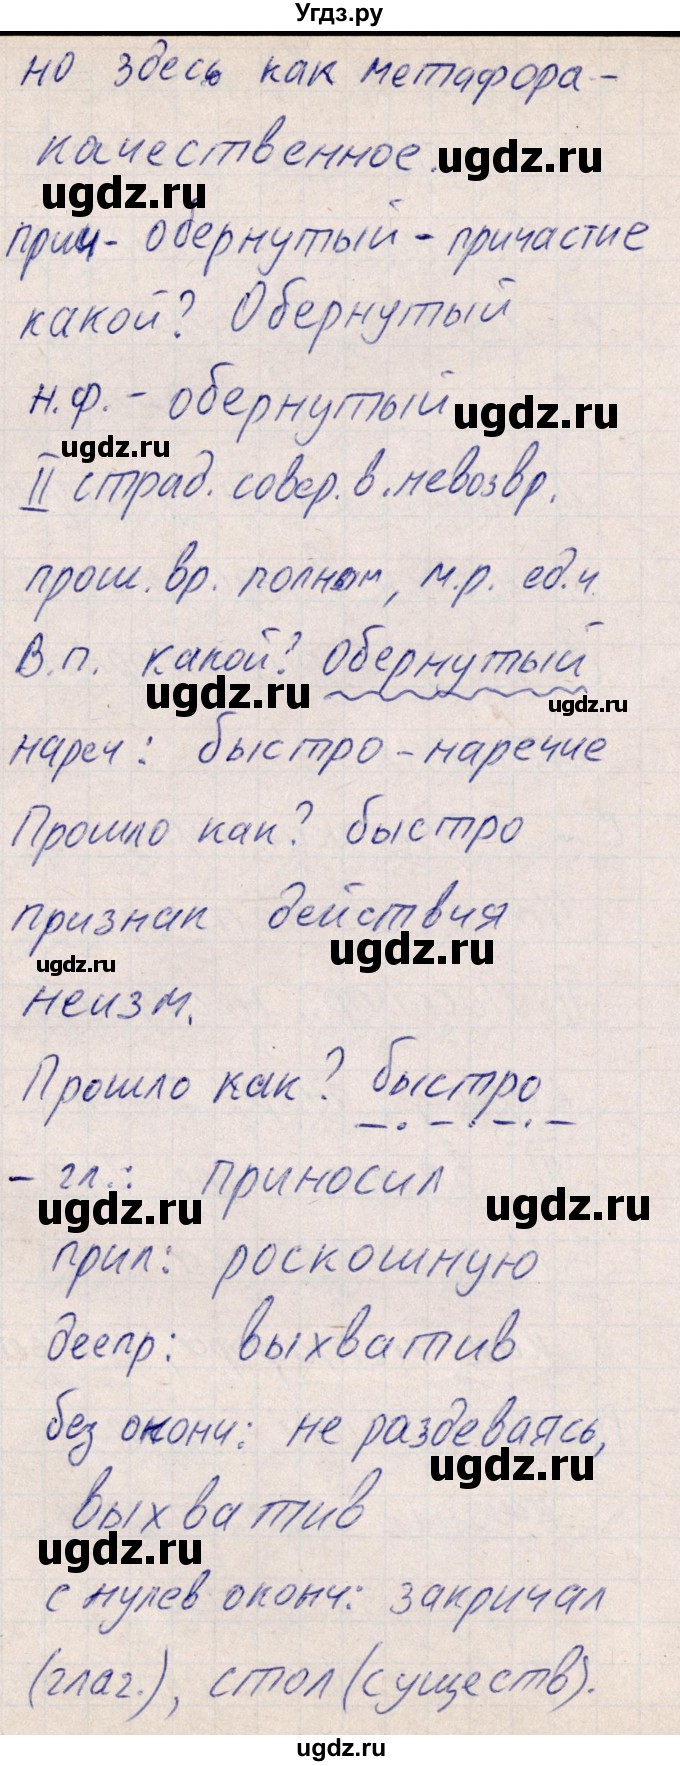 Угдз.ру
но здесь как метафора -
качественное.
ugdz.ru
ugdz.ru
прич - обернутый - причастие
какой? Обернутый
н.ф. - обернутый
ugdz.ru
ugdz.ru
II страд. совер. в. невозвр.
прош. вр. полном, м.р. ед.ч.
В.п. какой? Обернутый
ugdz.ru
ugdz.ru
нареч: быстро - наречие
Прошло как? быстро
признак действия
ugdz.ru
ugdz.ru
неизм.
Прошло как? быстро
- гл.: приносил
ugdz.ru
ugdz.ru
прил: роскошную
деепр: выхватив
без оконч: не раздеваясь,
ugdz.ru
выхватив
ugdz.ru
с нулев оконч: закричал
(глаг.), стол (существ).
ugdz.ru